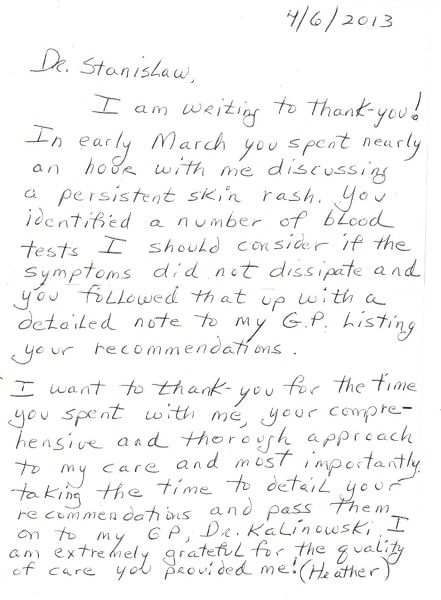 4/6/2013
Dr. Stanislaw,
I am writing to thank-you!
In early March you spent nearly
an hour with me discussing
a persistent skin rash. You
identified a number of blood
tests I should consider if the
symptoms did not dissipate and
you followed that up with a
detailed note to my G.P. listing
your recommendations.
I want to thank-you for the time
you spent with me, your compre-
hensive and thorough approach
to my care and most importantly
taking the time to detail your
recommendations and pass them
on to my GP, Dr. Kalinowski. I
am extremely grateful for the quality
of care you provided me! (Heather)